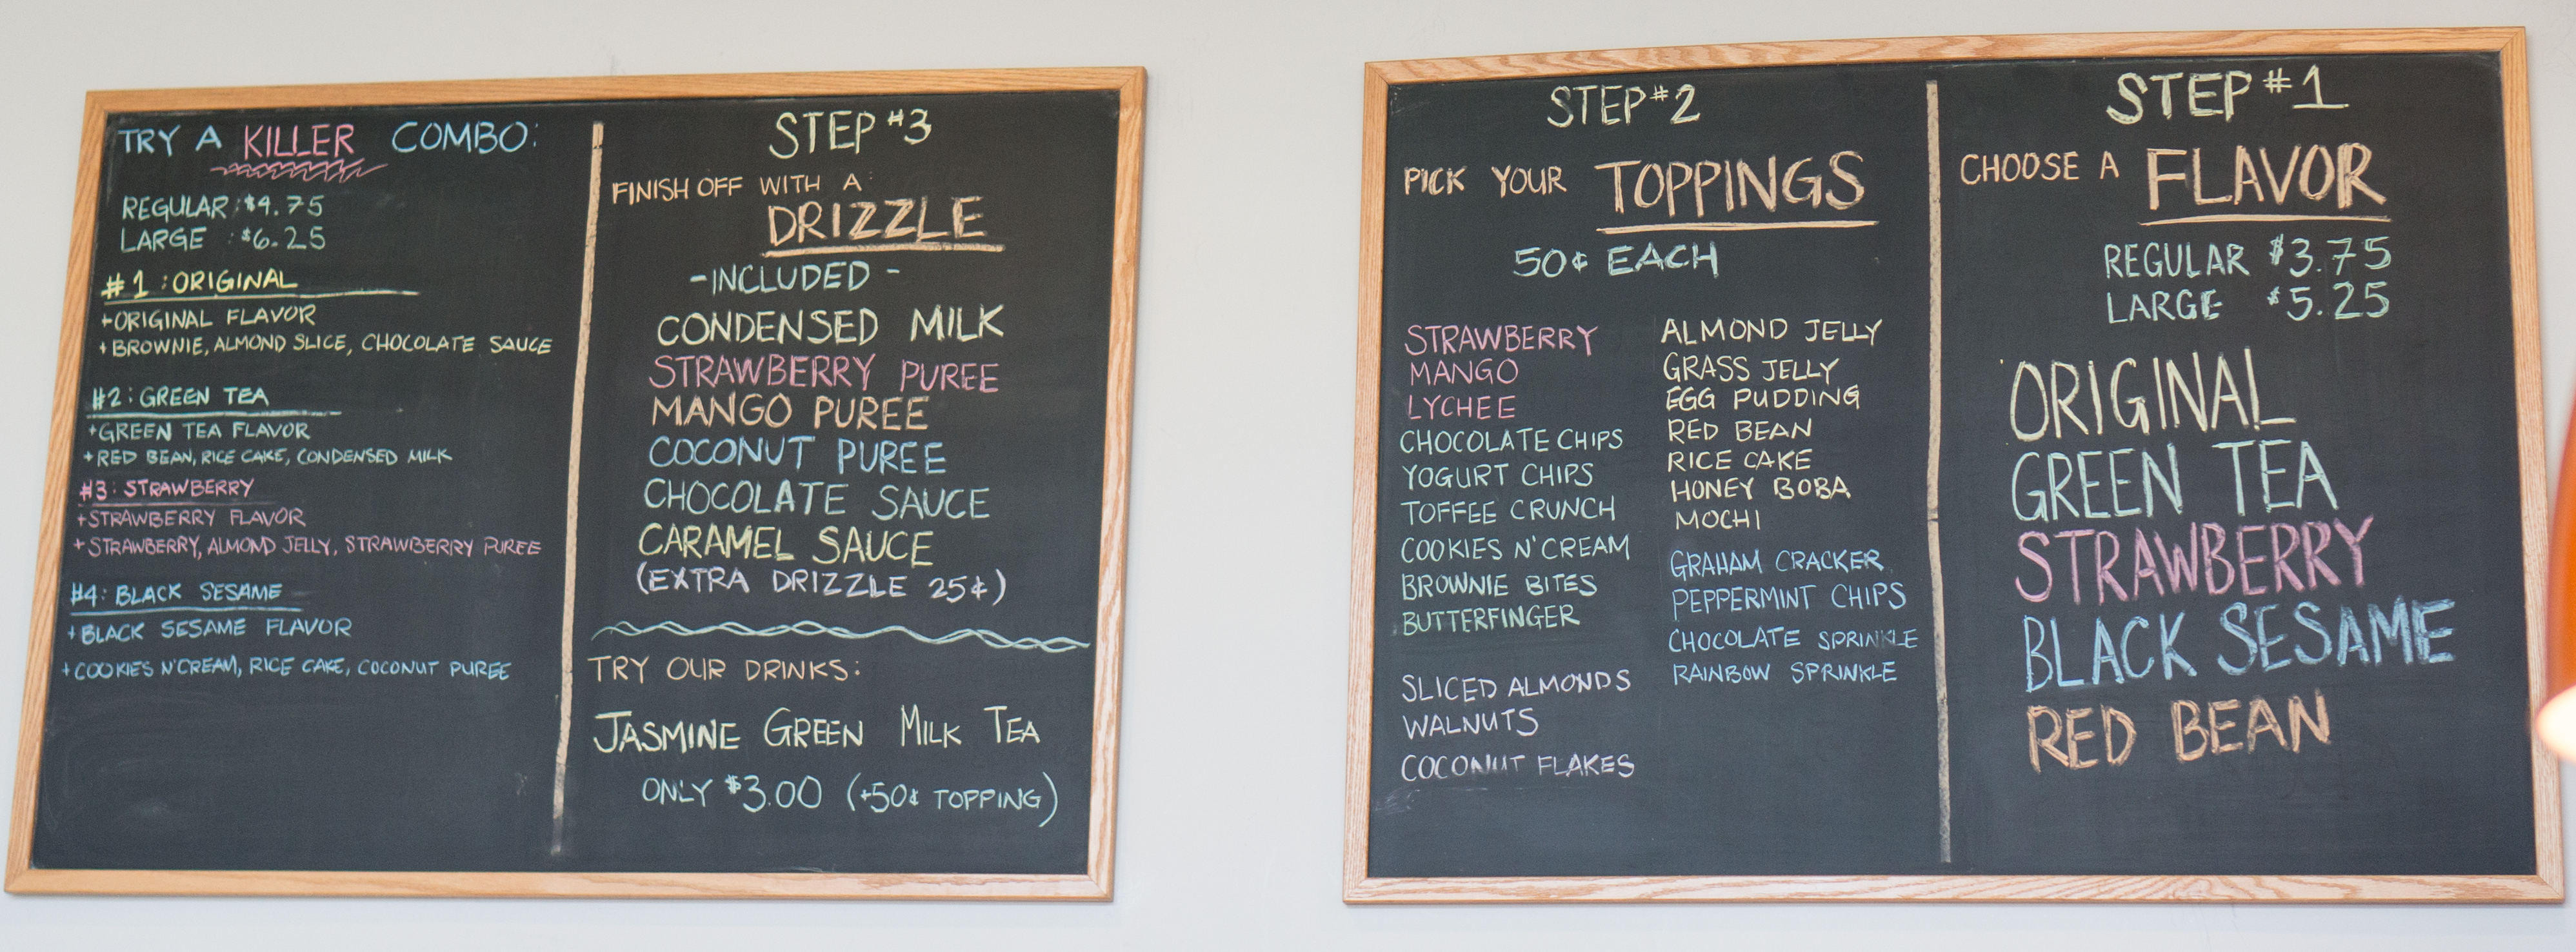 TRY A KILLER COMBO:
REGULAR: $4.75
LARGE : $6.25
#1 : ORIGINAL
+ORIGINAL FLAVOR
+BROWNIE, ALMOND SLICE, CHOCOLATE SAUCE
#2: GREEN TEA
+GREEN TEA FLAVOR
+RED BEAN, RICE CAKE, CONDENSED MILK
#3: STRAWBERRY
+STRAWBERRY FLAVOR
+STRAWBERRY, ALMOND JELLY, STRAWBERRY PUREE
#4: BLACK SESAME
+BLACK SESAME FLAVOR
+COOKIES N'CREAM, RICE CAKE, COCONUT PUREE
STEP #3
FINISH OFF WITH A:
DRIZZLE
-INCLUDED-
CONDENSED MILK
STRAWBERRY PUREE
MANGO PUREE
COCONUT PUREE
CHOCOLATE SAUCE
CARAMEL SAUCE
(EXTRA DRIZZLE 25¢)
TRY OUR DRINKS:
JASMINE GREEN MILK TEA
ONLY $3.00 (+50¢ TOPPING)
STEP #2
PICK YOUR TOPPINGS
50¢ EACH
STRAWBERRY
MANGO
LYCHEE
CHOCOLATE CHIPS
YOGURT CHIPS
TOFFEE CRUNCH
COOKIES N'CREAM
BROWNIE BITES
BUTTERFINGER
SLICED ALMONDS
WALNUTS
COCONUT FLAKES
ALMOND JELLY
GRASS JELLY
EGG PUDDING
RED BEAN
RICE CAKE
HONEY BOBA
MOCHI
GRAHAM CRACKER
PEPPERMINT CHIPS
CHOCOLATE SPRINKLE
RAINBOW SPRINKLE
STEP #1
CHOOSE A FLAVOR
REGULAR $3.75
LARGE $5.25
ORIGINAL
GREEN TEA
STRAWBERRY
BLACK SESAME
RED BEAN